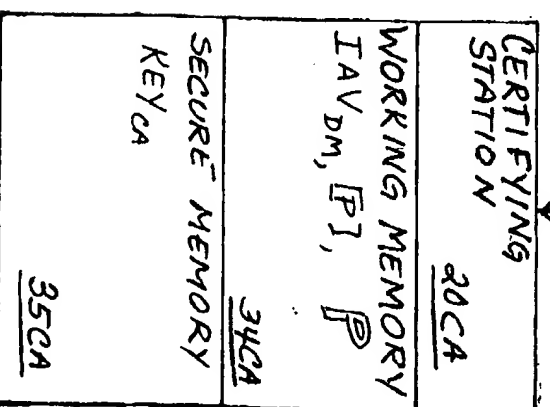 CERTIFYING
STATION
20CA
WORKING MEMORY
IAV_DM, [P], ℙ
34CA
SECURE MEMORY
KEY_CA
35CA